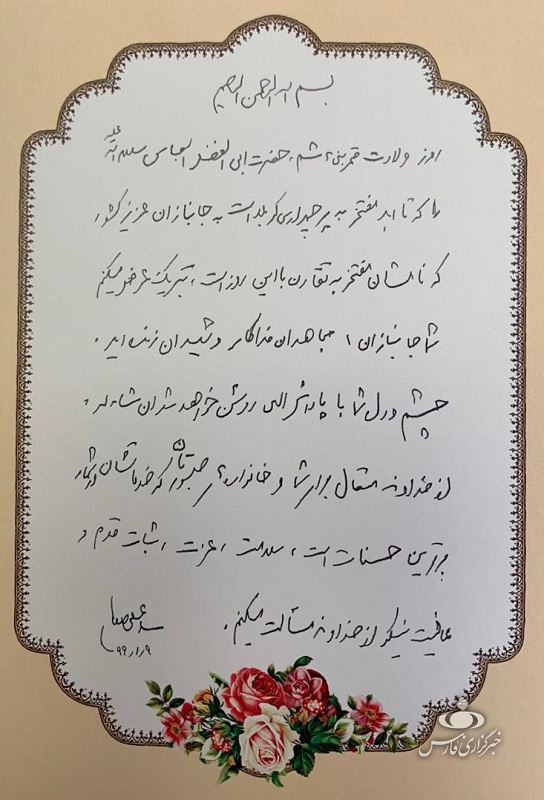 بسم الله الرحمن الرحیم
روز ولادت قمر بنی هاشم، حضرت ابی الفضل العباس سلام الله علیه
را که تا ابد مفتخر به پرچمداری کربلا است به جانبازان عزیز کشور
که نامشان مفتخر به تقارن با این روز است، تبریک عرض میکنم
شما جانبازان، مجاهدان فداکار و شهیدان زنده اید.
چشم و دل شما با پاداش الهی روشن خواهد شد ان شاءالله.
از خداوند متعال برای شما و خانواده های صبورتان که خدماتشان در شمار
برترین حسنات است، سلامت، عزت، ثبات قدم و
عافیت نیکو از خداوند مسألت میکنم.
سید علی
۹۹/۱/۹
خبرگزاری فارس